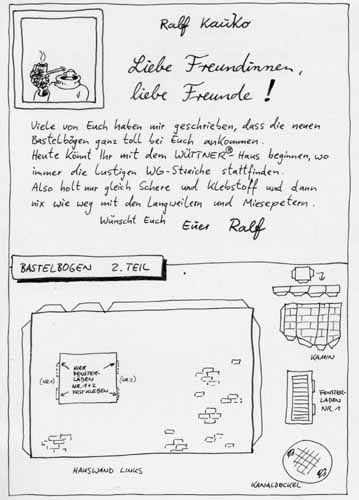 Ralf Kauko
Liebe Freundinnen,
liebe Freunde!
Viele von Euch haben mir geschrieben, dass die neuen
Bastelbögen ganz toll bei Euch ankommen.
Heute könnt Ihr mit dem WÜTTNER®-Haus beginnen, wo
immer die lustigen WG-Streiche stattfinden.
Also holt nur gleich Schere und Klebstoff und dann
nix wie weg mit den Langweilern und Miesepetern.
Wünscht Euch Euer Ralf
BASTELBOGEN 2. TEIL
KAMIN
HIER
FENSTER-
LÄDEN
NR. 1+2
FESTKLEBEN
(NR. 1)
(NR. 2)
FENSTER-
LADEN
NR. 1
HAUSWAND LINKS
KANALDECKEL